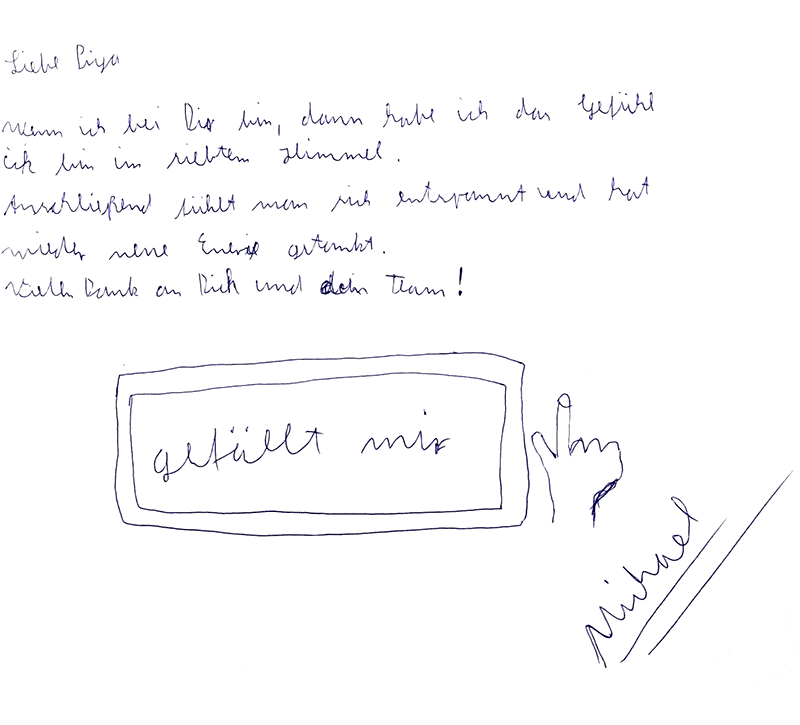 Liebe Piya
wenn ich bei Dir bin, dann habe ich das Gefühl
ich bin im siebtem Himmel.
Anschließend fühlt man sich entspannt und hat
wieder neue Energie getankt.
Vielen Dank an Dich und dein Team!
gefällt mir
Michael